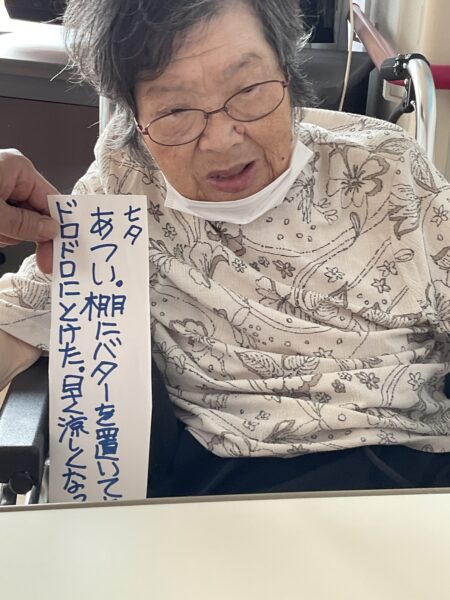 七夕
あつい。棚にバターを置いて
ドロドロにとけた。早く涼しくなっ